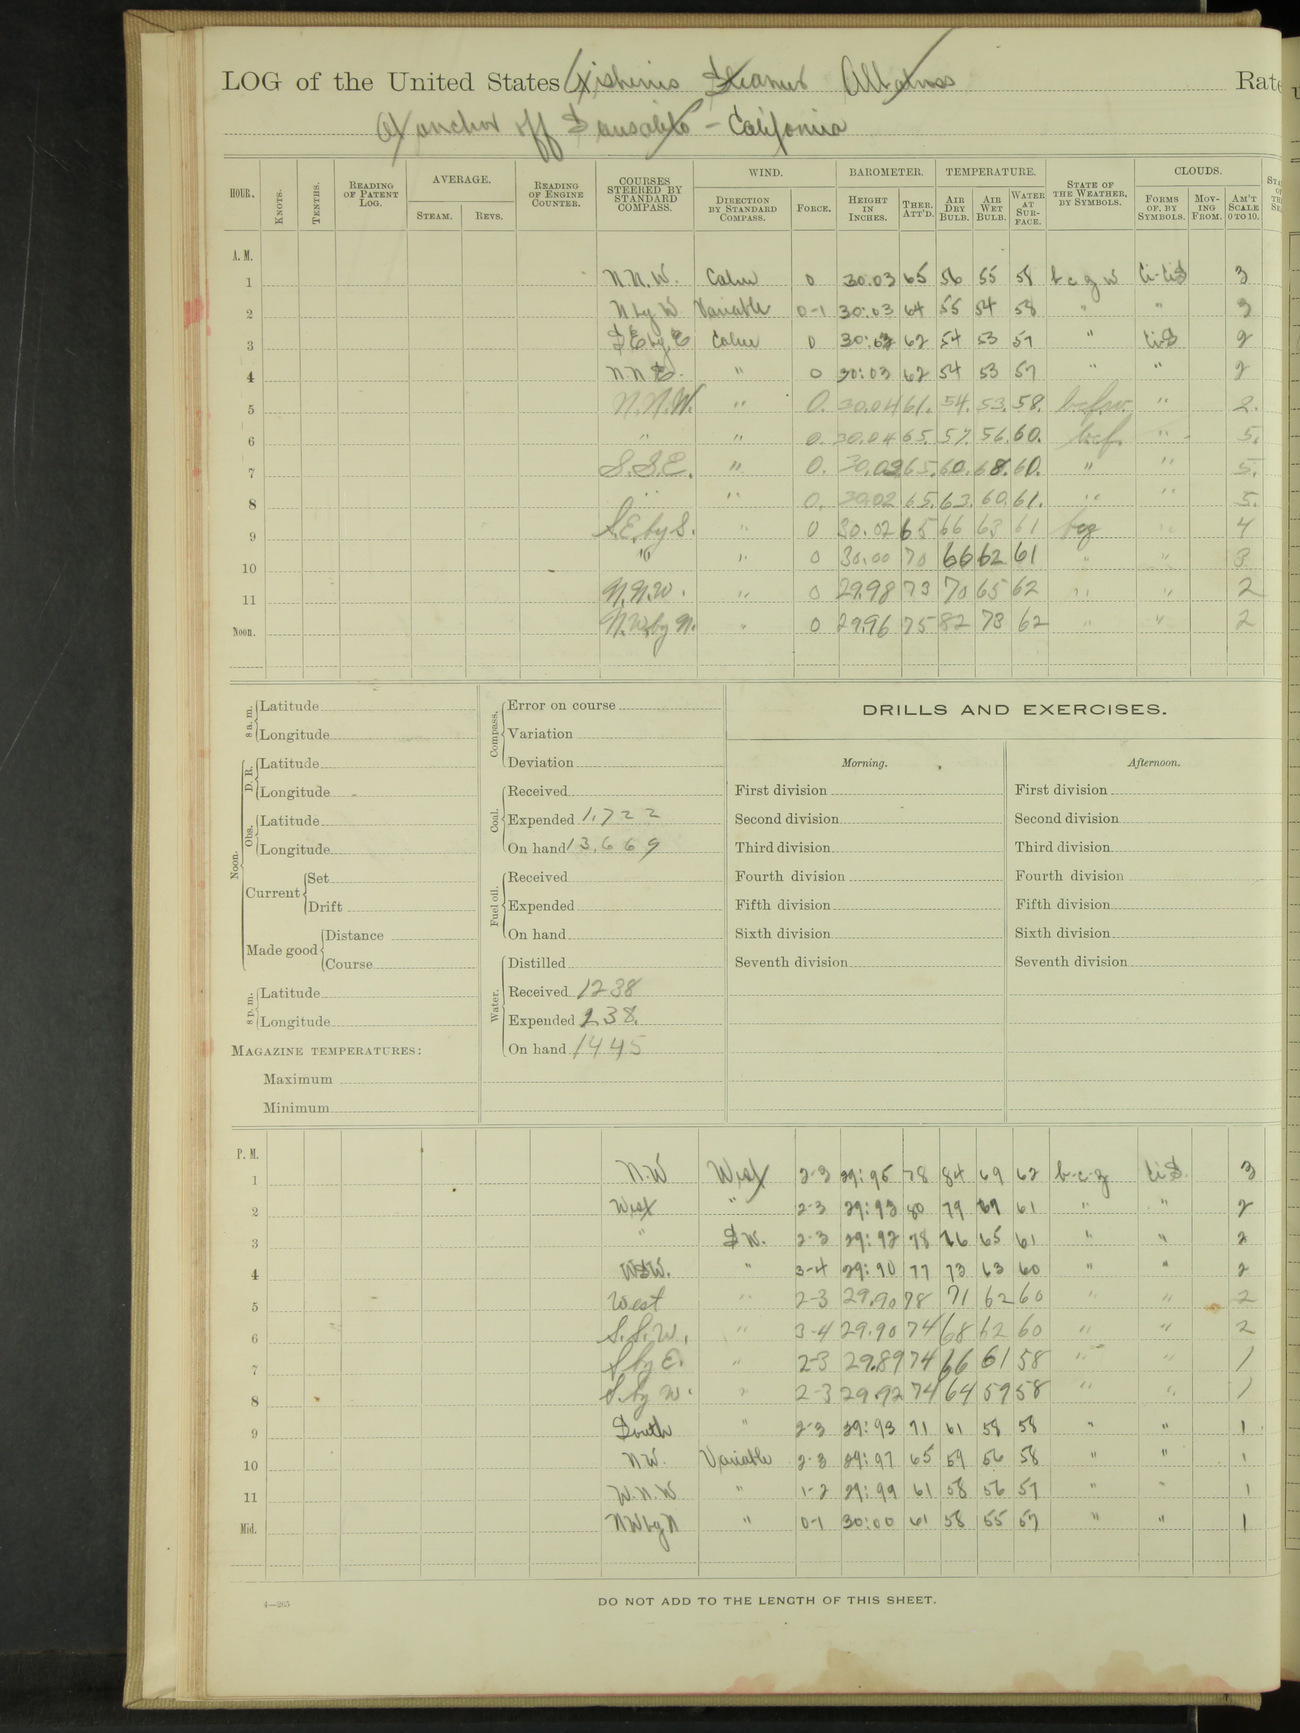 LOG of the United States Fisheries Steamer Albatross Rate
At anchor off Sausalito - California
HOUR. KNOTS. TENTHS. READING OF PATENT LOG. AVERAGE. STEAM. REVS. READING OF ENGINE COUNTER. COURSES STEERED BY STANDARD COMPASS. WIND. DIRECTION BY STANDARD COMPASS. FORCE. BAROMETER. HEIGHT IN INCHES. THER. ATT'D. TEMPERATURE. AIR DRY BULB. AIR WET BULB. WATER AT SURFACE. STATE OF THE WEATHER, BY SYMBOLS. CLOUDS. FORMS OF, BY SYMBOLS. MOVING FROM. AM'T SCALE 0 TO 10.
A. M.
1 N.N.W. Calm 0 30.03 65 56 55 58 b c z w Ci-CiS 3
2 N by W Variable 0-1 30:03 64 55 54 58 " " 3
3 SE by E Calm 0 30:03 62 54 53 57 " CiS 2
4 N N E. " 0 30:03 62 54 53 57 " " 2
5 N.N.W. " 0. 30.04 61. 54. 53. 58. b.c.f.w. " 2.
6 " " 0. 30.04 65. 57. 56. 60. b.c.f. " 5.
7 S.S.E. " 0. 30.03 65. 60. 68. 60. " " 5.
8 " " 0. 30.02 65. 63. 60. 61. " " 5.
9 S.E. by S. " 0 30.02 65 66 63 61 bcz " 4
10 " " 0 30.00 70 66 62 61 " " 3
11 N.N.W. " 0 29.98 73 70 65 62 " " 2
Noon. N.W. by N. " 0 29.96 75 82 73 62 " " 2
8 a. m. Latitude
Longitude
Noon. D. R. Latitude
Longitude
Obs. Latitude
Longitude
Current Set
Drift
Made good Distance
Course
8 p. m. Latitude
Longitude
MAGAZINE TEMPERATURES:
Maximum
Minimum
Compass. Error on course
Variation
Deviation
Coal. Received
Expended 1,722
On hand 13,669
Fuel oil. Received
Expended
On hand
Water. Distilled
Received 1238
Expended 238.
On hand 1445
DRILLS AND EXERCISES.
Morning. Afternoon.
First division First division
Second division Second division
Third division Third division
Fourth division Fourth division
Fifth division Fifth division
Sixth division Sixth division
Seventh division Seventh division
P. M.
1 N.W West 2-3 29:95 78 84 69 62 b-c-z CiS. 3
2 West " 2-3 29:93 80 79 69 61 " " 2
3 " SW. 2-3 29:92 78 76 65 61 " " 2
4 WSW. " 3-4 29:90 77 73 63 60 " " 2
5 West " 2-3 29.90 78 71 62 60 " " 2
6 S.S.W. " 3-4 29.90 74 68 62 60 " " 2
7 S by E. " 2-3 29.89 74 66 61 58 " " 1
8 S. by W. " 2-3 29.92 74 64 59 58 " " 1
9 South " 2-3 29:93 71 61 58 58 " " 1
10 N.W. Variable 2-3 29:97 65 59 56 58 " " 1
11 W.N.W " 1-2 29:99 61 58 56 57 " " 1
Mid. NW by N " 0-1 30:00 61 58 55 57 " " 1
4—265
DO NOT ADD TO THE LENGTH OF THIS SHEET.